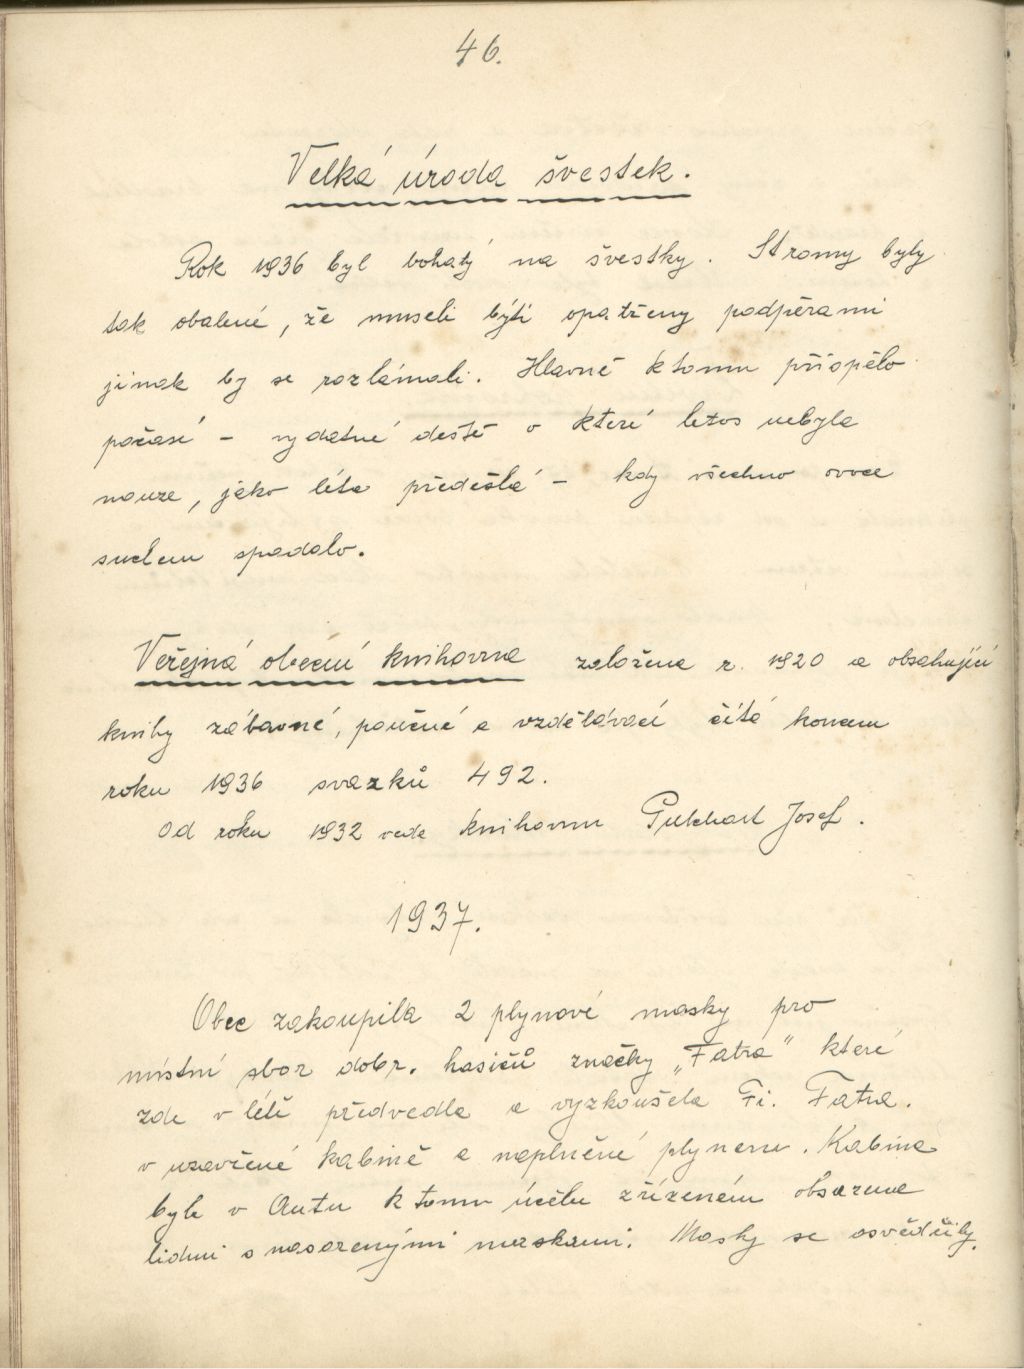 46.
Velká úroda švestek.
Rok 1936 byl bohatý na švestky. Stromy byly
tak obalené, že museli býti opatřeny podpěrami
jinak by se rozlámali. Hlavně k tomu přispělo
počasí – vydatné deště o které letos nebyla
nouze, jako léta předešlá – kdy všechno ovoce
suchem spadalo.
Veřejná obecní knihovna založena r. 1920 a obsahující
knihy zábavné, poučné a vzdělávací čítá koncem
roku 1936 svazků 492.
Od roku 1932 vede knihovnu Josef.
1937.
Obec zakoupila 2 plynové masky pro
místní sbor dobr. hasičů značky „Fatra" které
zde v létě předvedla a vyzkoušela Fi. Fatra.
v uzavřené kabině a naplněné plynem. Kabina
byla v Autu k tomu účelu zřízeném obsazena
lidmi s nasazenými maskami. Masky se osvědčily.